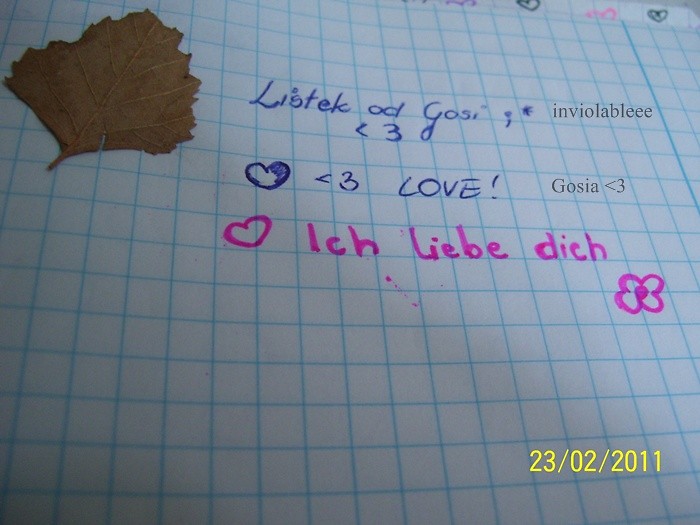 Listek od Gosi ;* inviolableee
<3
<3 LOVE! Gosia <3
Ich liebe dich
23/02/2011